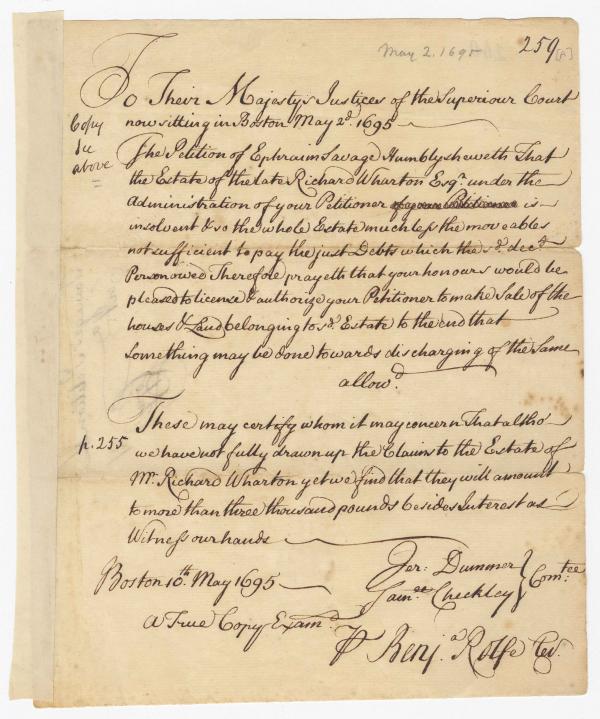 May 2. 1695
259
[A]
To Their Majestys Justices of the Superiour Court
now sitting in Boston May 2d. 1695
Copy
see
above
The Petition of Ephraim Savage Humbly sheweth That
the Estate of the late Richard Wharton Esqr. under the
Administration of your Petitioner of your Petitioner is
insolvent & so the whole Estate much less the moveables
not sufficient to pay the just Debts which the sd. decd.
Person owed Therefore prayeth that your honours would be
pleased to license & authorize your Petitioner to make Sale of the
houses & Land belonging to sd. Estate to the end that
Something may be done towards discharging of the Same
allowd.
p. 255
These may certify whom it may concern That altho
we have not fully drawn up the Claims to the Estate of
Mr. Richard Wharton yet we find that they will amount
to more than three thousand pounds besides Interest as
Witness our hands
Boston 10th. May 1695
Jer: Dummer
Samll Checkley
Comtee:
A True Copy Examd.
Pr Benja. Rolfe Cler.